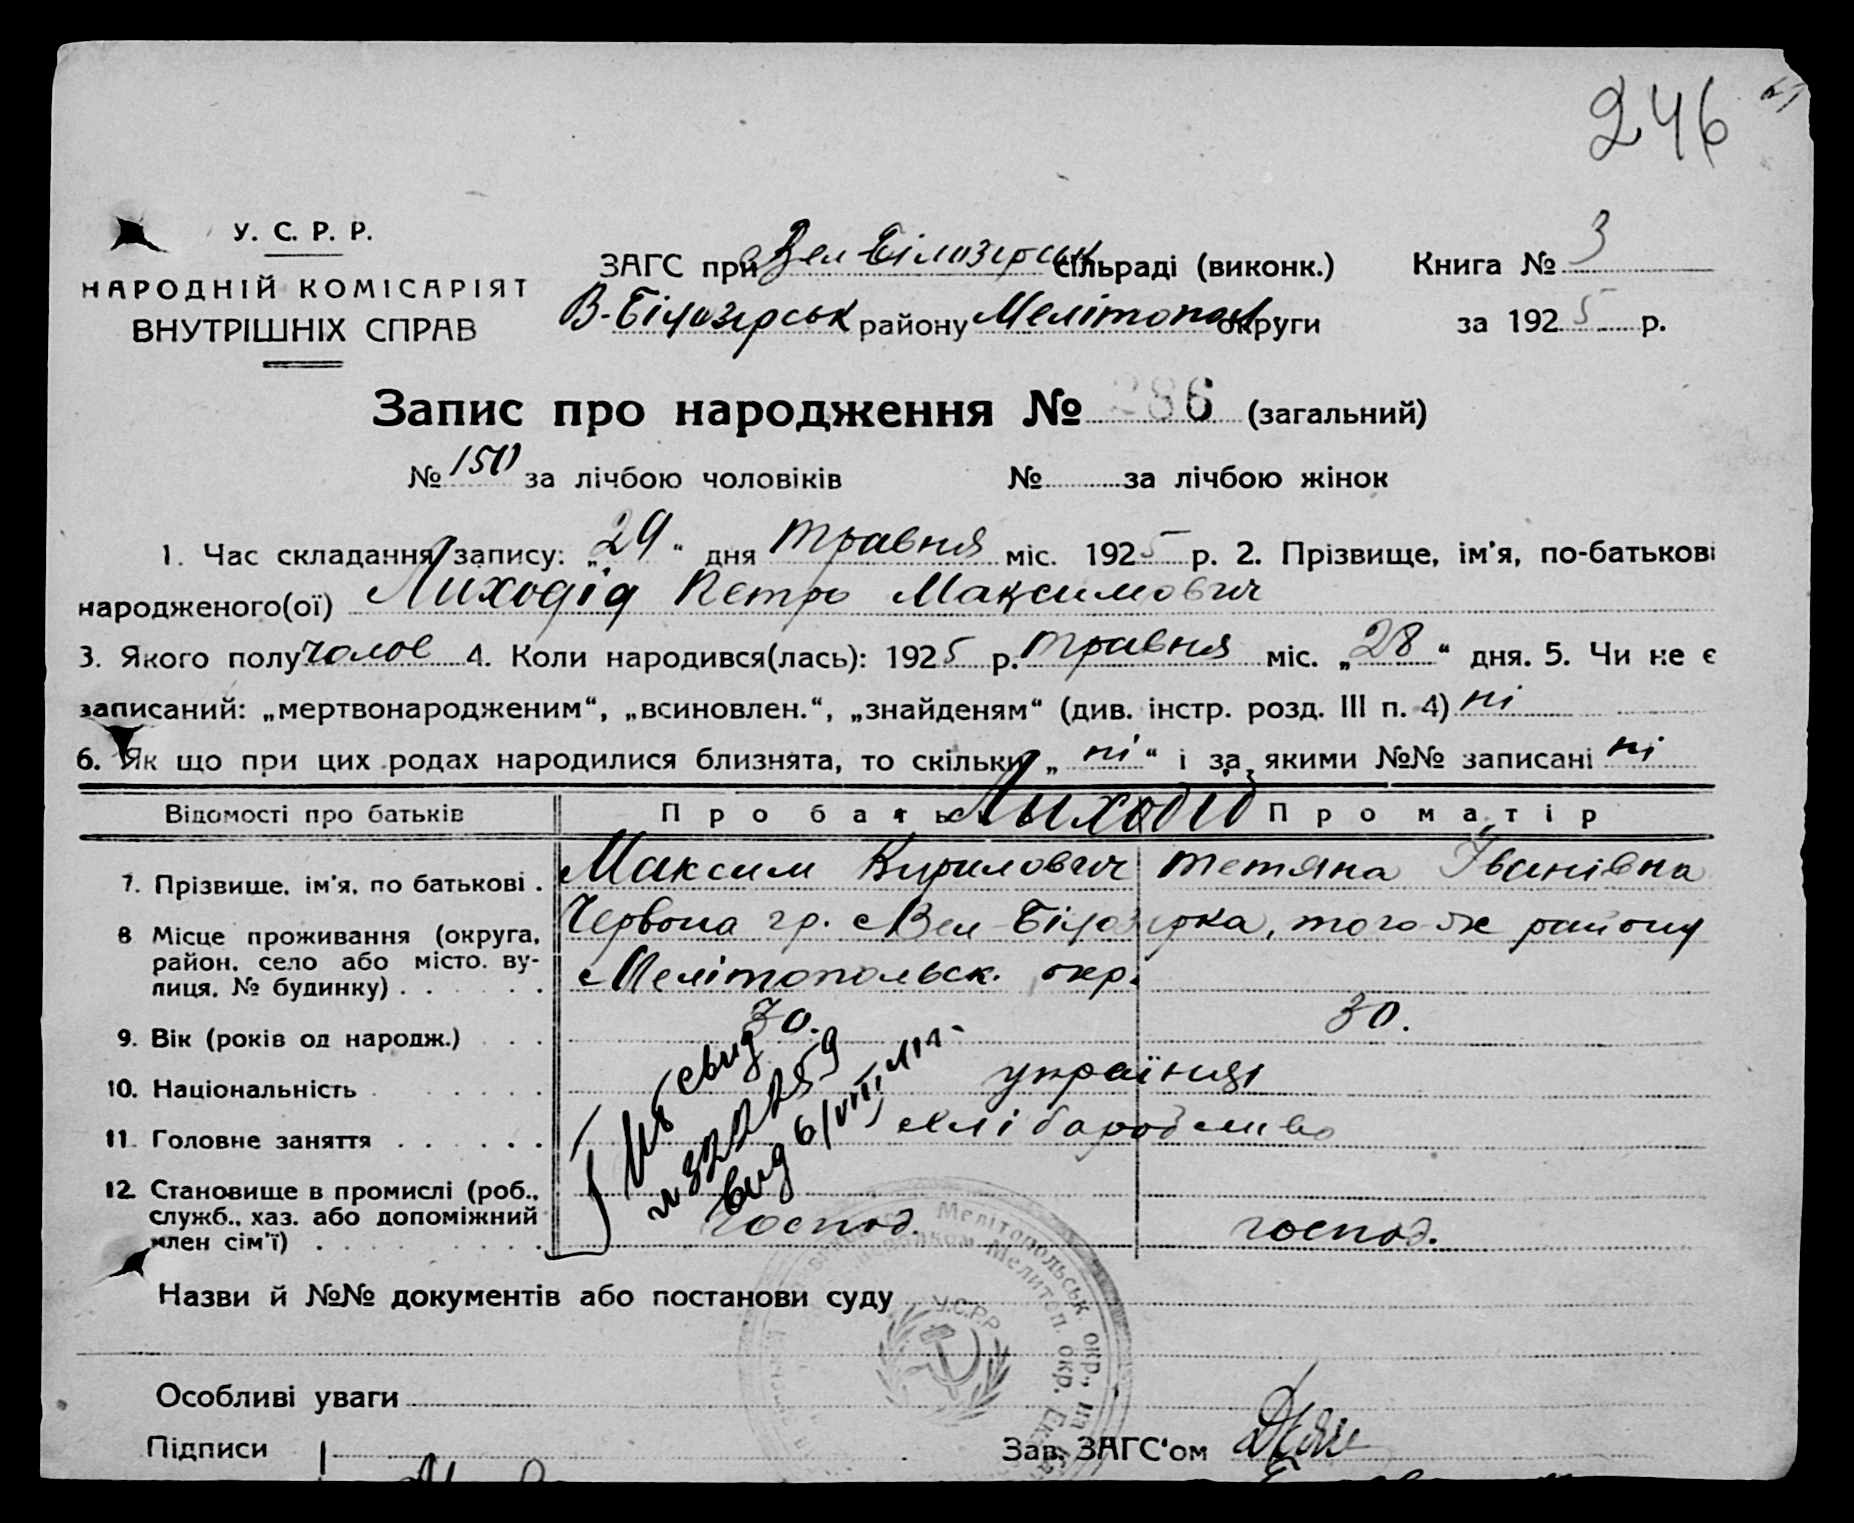 246
У. С. Р. Р.
НАРОДНІЙ КОМІСАРІЯТ
ВНУТРІШНІХ СПРАВ
ЗАГС при Вел-Білозірськ сільраді (виконк.) Книга № 3
В-Білозірськ району Мелітопол округи за 1925 р.
Запис про народження № 286 (загальний)
№ 150 за лічбою чоловіків № за лічбою жінок
1. Час складання запису: „29“ дня травня міс. 1925 р. 2. Прізвище, ім'я, по-батькові
народженого(ої) Лиходід Петро Максимович
3. Якого полу чолов 4. Коли народився(лась): 1925 р. травня міс. „28“ дня. 5. Чи не є
записаний: „мертвонародженим“, „всиновлен.“, „знайденям“ (див. інстр. розд. III п. 4) ні
6. Як що при цих родах народилися близнята, то скільки „ні“ і за якими №№ записані ні
Відомості про батьків Про батька Про матір
Лыходід
7. Прізвище, ім'я, по батькові . Максим Кирилович Тетяна Іванівна
8 Місце проживання (округа, район, село або місто, ву-
лиця, № будинку) . . . . . . Червона гр. с Вел-Білозірка, того-ж району
Мелітопольск. окр.
9. Вік (років од народж.) . . . 30. 30.
10. Національність . . . . . . українці
11. Головне заняття . . . . . . хлібаробство
12. Становище в промислі (роб.,
служб., хаз. або допоміжний
член сім'ї) . . . . . . . . . господ. господ.
свид
322259
вид 6/VIII
Назви й №№ документів або постанови суду
У.С.Р.Р.
Мелітопольськ. окр., на
Мелитоп. окр.
Особливі уваги
Підписи
Зав. ЗАГС'ом